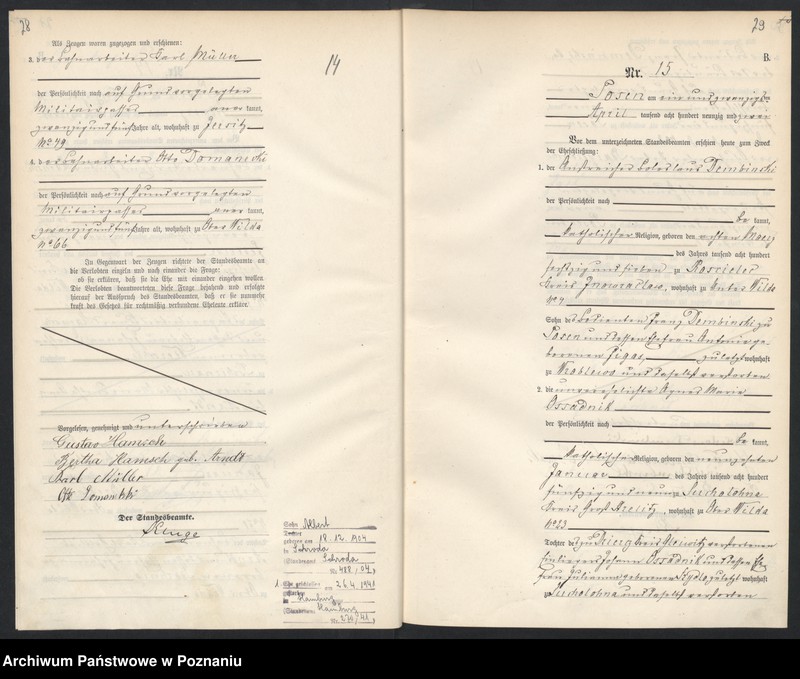 28
Als Zeugen waren zugezogen und erschienen:
3. der Bahnarbeiter Karl Müller
der Persönlichkeit nach auf Grund vorgelegten
Militairpasses anerkannt,
zwanzig und fünf Jahre alt, wohnhaft zu Jersitz
No 49
4. der Bahnarbeiter Otto Domanscki
der Persönlichkeit nach auf Grund vorgelegten
Militairpasses anerkannt,
zwanzig und fünf Jahre alt, wohnhaft zu Ober Wilda
No 66
In Gegenwart der Zeugen richtete der Standesbeamte an
die Verlobten einzeln und nach einander die Frage:
ob sie erklären, daß sie die Ehe mit einander eingehen wollen.
Die Verlobten beantworteten diese Frage bejahend und erfolgte
hierauf der Ausspruch des Standesbeamten, daß er sie nunmehr
kraft des Gesetzes für rechtmäßig verbundene Eheleute erkläre.
Vorgelesen, genehmigt und unterschrieben
Gustav Hamsch
Bertha Hamsch geb. Arndt
Karl Müller
Otto
Der Standesbeamte.
14
Sohn Albert
Tochter
geboren am 18.12.1904
in Schroda
Standesamt Schroda
Nr. 488/04
1 Ehe geschlossen am 26.4.1941
in Hamburg
Standesamt Hamburg
Nr. 270/41
29
B.
Nr. 15
Posen am ein und zwanzigsten
April tausend acht hundert neunzig und zwei
Vor dem unterzeichneten Standesbeamten erschien heute zum Zweck
der Eheschließung:
1. der Anstreicher Boleslaus Dembinski
der Persönlichkeit nach
bekannt,
katholischer Religion, geboren den achten März
des Jahres tausend acht hundert
sechzig und sieben zu
Kreis Inowrazlaw, wohnhaft zu Unter Wilda
Sohn des Bedienten Franz Dembinski zu
Posen und dessen Ehefrau Antonie ge
borenen Pigas, zuletzt wohnhaft
zu Wroblewo und daselbst verstorben
2. die unverehelichte Agnes Marie
Ossadnik
der Persönlichkeit nach
bekannt,
katholischer Religion, geboren den neunzehnten
Januar des Jahres tausend acht hundert
fünfzig und neun zu Sucholohna
Kreis Groß Strelitz, wohnhaft zu Ober Wilda
No 23
Tochter des zu Kreis Gleiwitz verstorbenen
Einliegers Johann Ossadnik und dessen Ehe
frau Julianna geborenen zuletzt wohnhaft
zu Sucholohna und daselbst verstorben
Archiwum Państwowe w Poznaniu